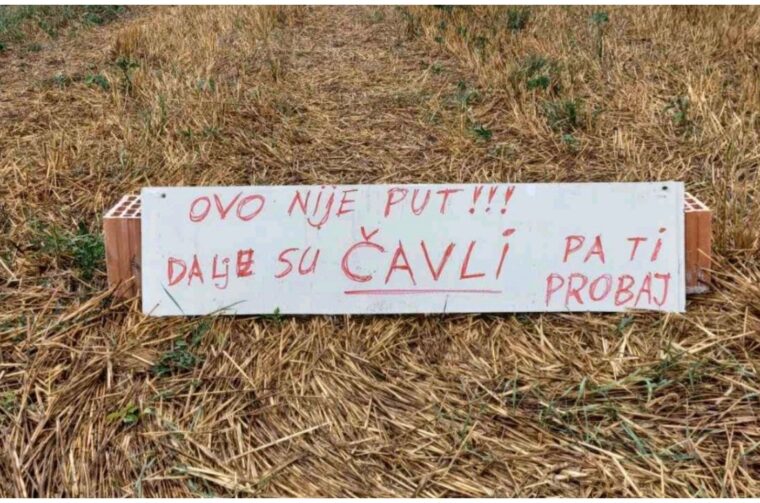 OVO NIJE PUT!!!
DALJE SU ČAVLI PA TI
PROBAJ